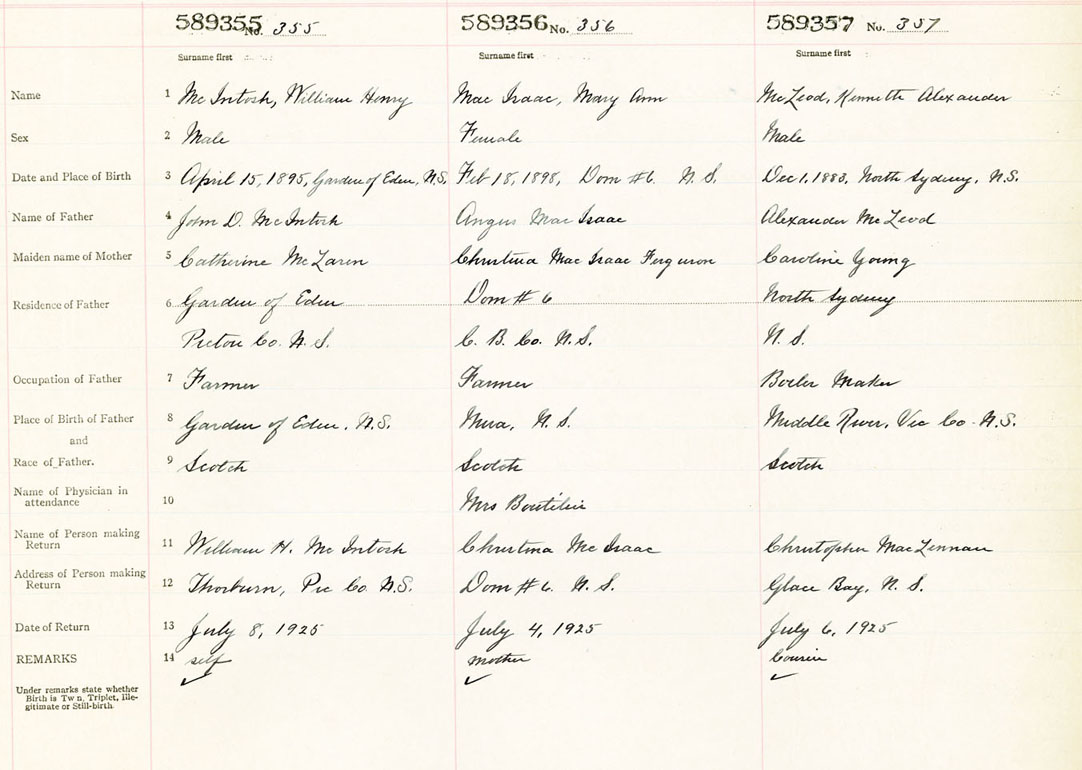 589355 No. 355 589356 No. 356 589357 No. 357
Surname first Surname first Surname first
Name 1 Mc Intosh, William Henry Mac Isaac, Mary Ann McLeod, Kenneth Alexander
Sex 2 Male Female Male
Date and Place of Birth 3 April 15, 1895, Garden of Eden, N.S. Feb 18, 1898, Dom #6 N.S. Dec 1, 1883, North Sydney, N.S.
Name of Father 4 John D. McIntosh Angus Mac Isaac Alexander McLeod
Maiden name of Mother 5 Catherine McLaren Christina Mac Isaac Ferguson Caroline Young
Residence of Father 6 Garden of Eden Dom # 6 North Sydney
Pictou Co. N.S. C. B. Co. N.S. N. S.
Occupation of Father 7 Farmer Farmer Boiler Maker
Place of Birth of Father 8 Garden of Eden, N.S. Mira, N. S. Middle River, Vic Co. N.S.
and
Race of Father. 9 Scotch Scotch Scotch
Name of Physician in attendance 10 Mrs Boutilier
Name of Person making Return 11 William H. Mc Intosh Christina Mc Isaac Christopher MacLennan
Address of Person making Return 12 Thorburn, Pic Co. N.S. Dom #6. N. S. Glace Bay, N. S.
Date of Return 13 July 8, 1925 July 4, 1925 July 6, 1925
REMARKS 14 self mother Cousin
Under remarks state whether
Birth is Tw n, Triplet, Ille-
gitimate or Still-birth.